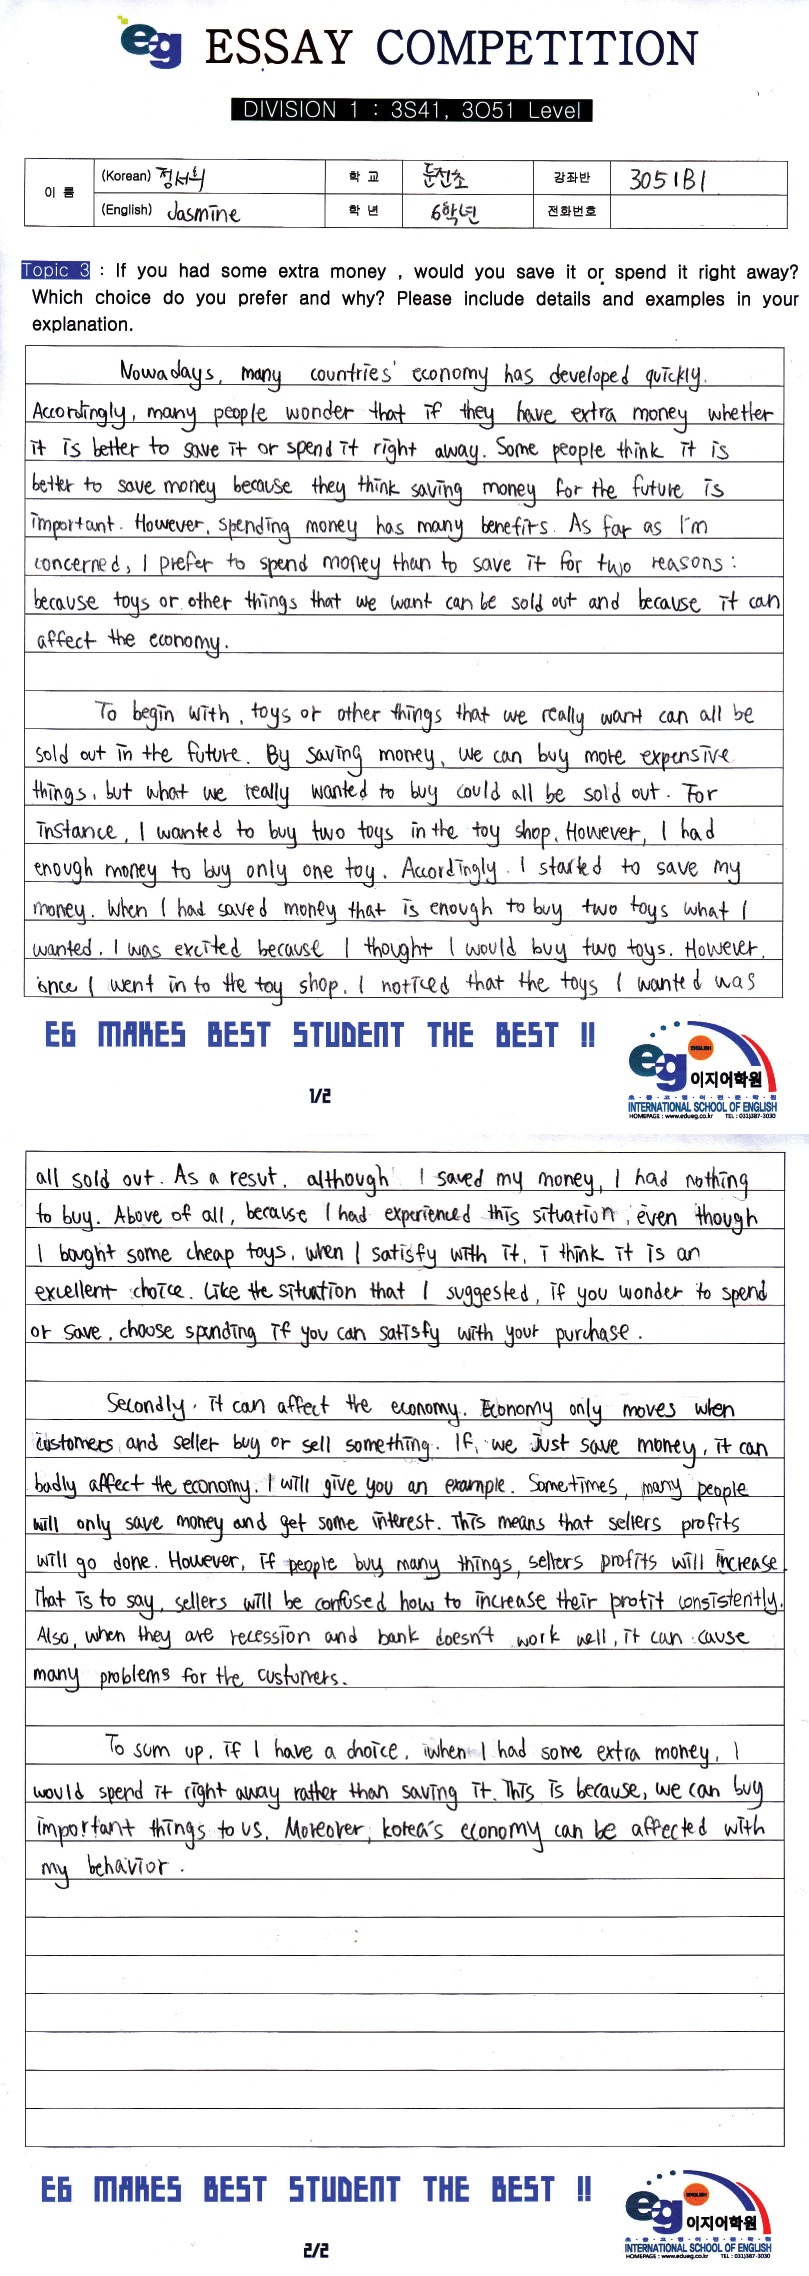 eg ESSAY COMPETITION
DIVISION 1 : 3S41, 3O51 Level
이 름 (Korean) 정서희 학 교 둔전초 강좌반 3O51B1
(English) Jasmine 학 년 6학년 전화번호
Topic 3 : If you had some extra money , would you save it or spend it right away?
Which choice do you prefer and why? Please include details and examples in your
explanation.
Nowadays, many countries' economy has developed quickly.
Accordingly, many people wonder that if they have extra money whether
it is better to save it or spend it right away. Some people think it is
better to save money because they think saving money for the future is
important. However, spending money has many benefits. As far as I'm
concerned, I prefer to spend money than to save it for two reasons:
because toys or other things that we want can be sold out and because it can
affect the economy.
To begin with, toys or other things that we really want can all be
sold out in the future. By saving money, we can buy more expensive
things, but what we really wanted to buy could all be sold out. For
instance, I wanted to buy two toys in the toy shop. However, I had
enough money to buy only one toy. Accordingly, I started to save my
money. When I had saved money that is enough to buy two toys what I
wanted, I was excited because I thought I would buy two toys. However,
once I went in to the toy shop, I noticed that the toys I wanted was
EG MAKES BEST STUDENT THE BEST !!
1/2
eg ENGLISH 이지어학원
초·중·고·영·어·전·문·학·원
INTERNATIONAL SCHOOL OF ENGLISH
HOMEPAGE : www.edueg.co.kr TEL : 031)387-3030
all sold out. As a resut, although I saved my money, I had nothing
to buy. Above of all, because I had experienced this situation, even though
I bought some cheap toys, when I satisfy with it, i think it is an
excellent choice. Like the situation that I suggested, if you wonder to spend
or save, choose spending if you can satisfy with your purchase.
Secondly, it can affect the economy. Economy only moves when
customers and seller buy or sell something. If, we just save money, it can
badly affect the economy. I will give you an example. Sometimes, many people
will only save money and get some interest. This means that sellers profits
will go done. However, if people buy many things, sellers profits will increase.
That is to say, sellers will be confused how to increase their profit consistently.
Also, when they are recession and bank doesn't work well, it can cause
many problems for the customers.
To sum up, if I have a choice, when I had some extra money, I
would spend it right away rather than saving it. This is because, we can buy
important things to us. Moreover, korea's economy can be affected with
my behavior.
EG MAKES BEST STUDENT THE BEST !!
2/2
eg ENGLISH 이지어학원
초·중·고·영·어·전·문·학·원
INTERNATIONAL SCHOOL OF ENGLISH
HOMEPAGE : www.edueg.co.kr TEL : 031)387-3030